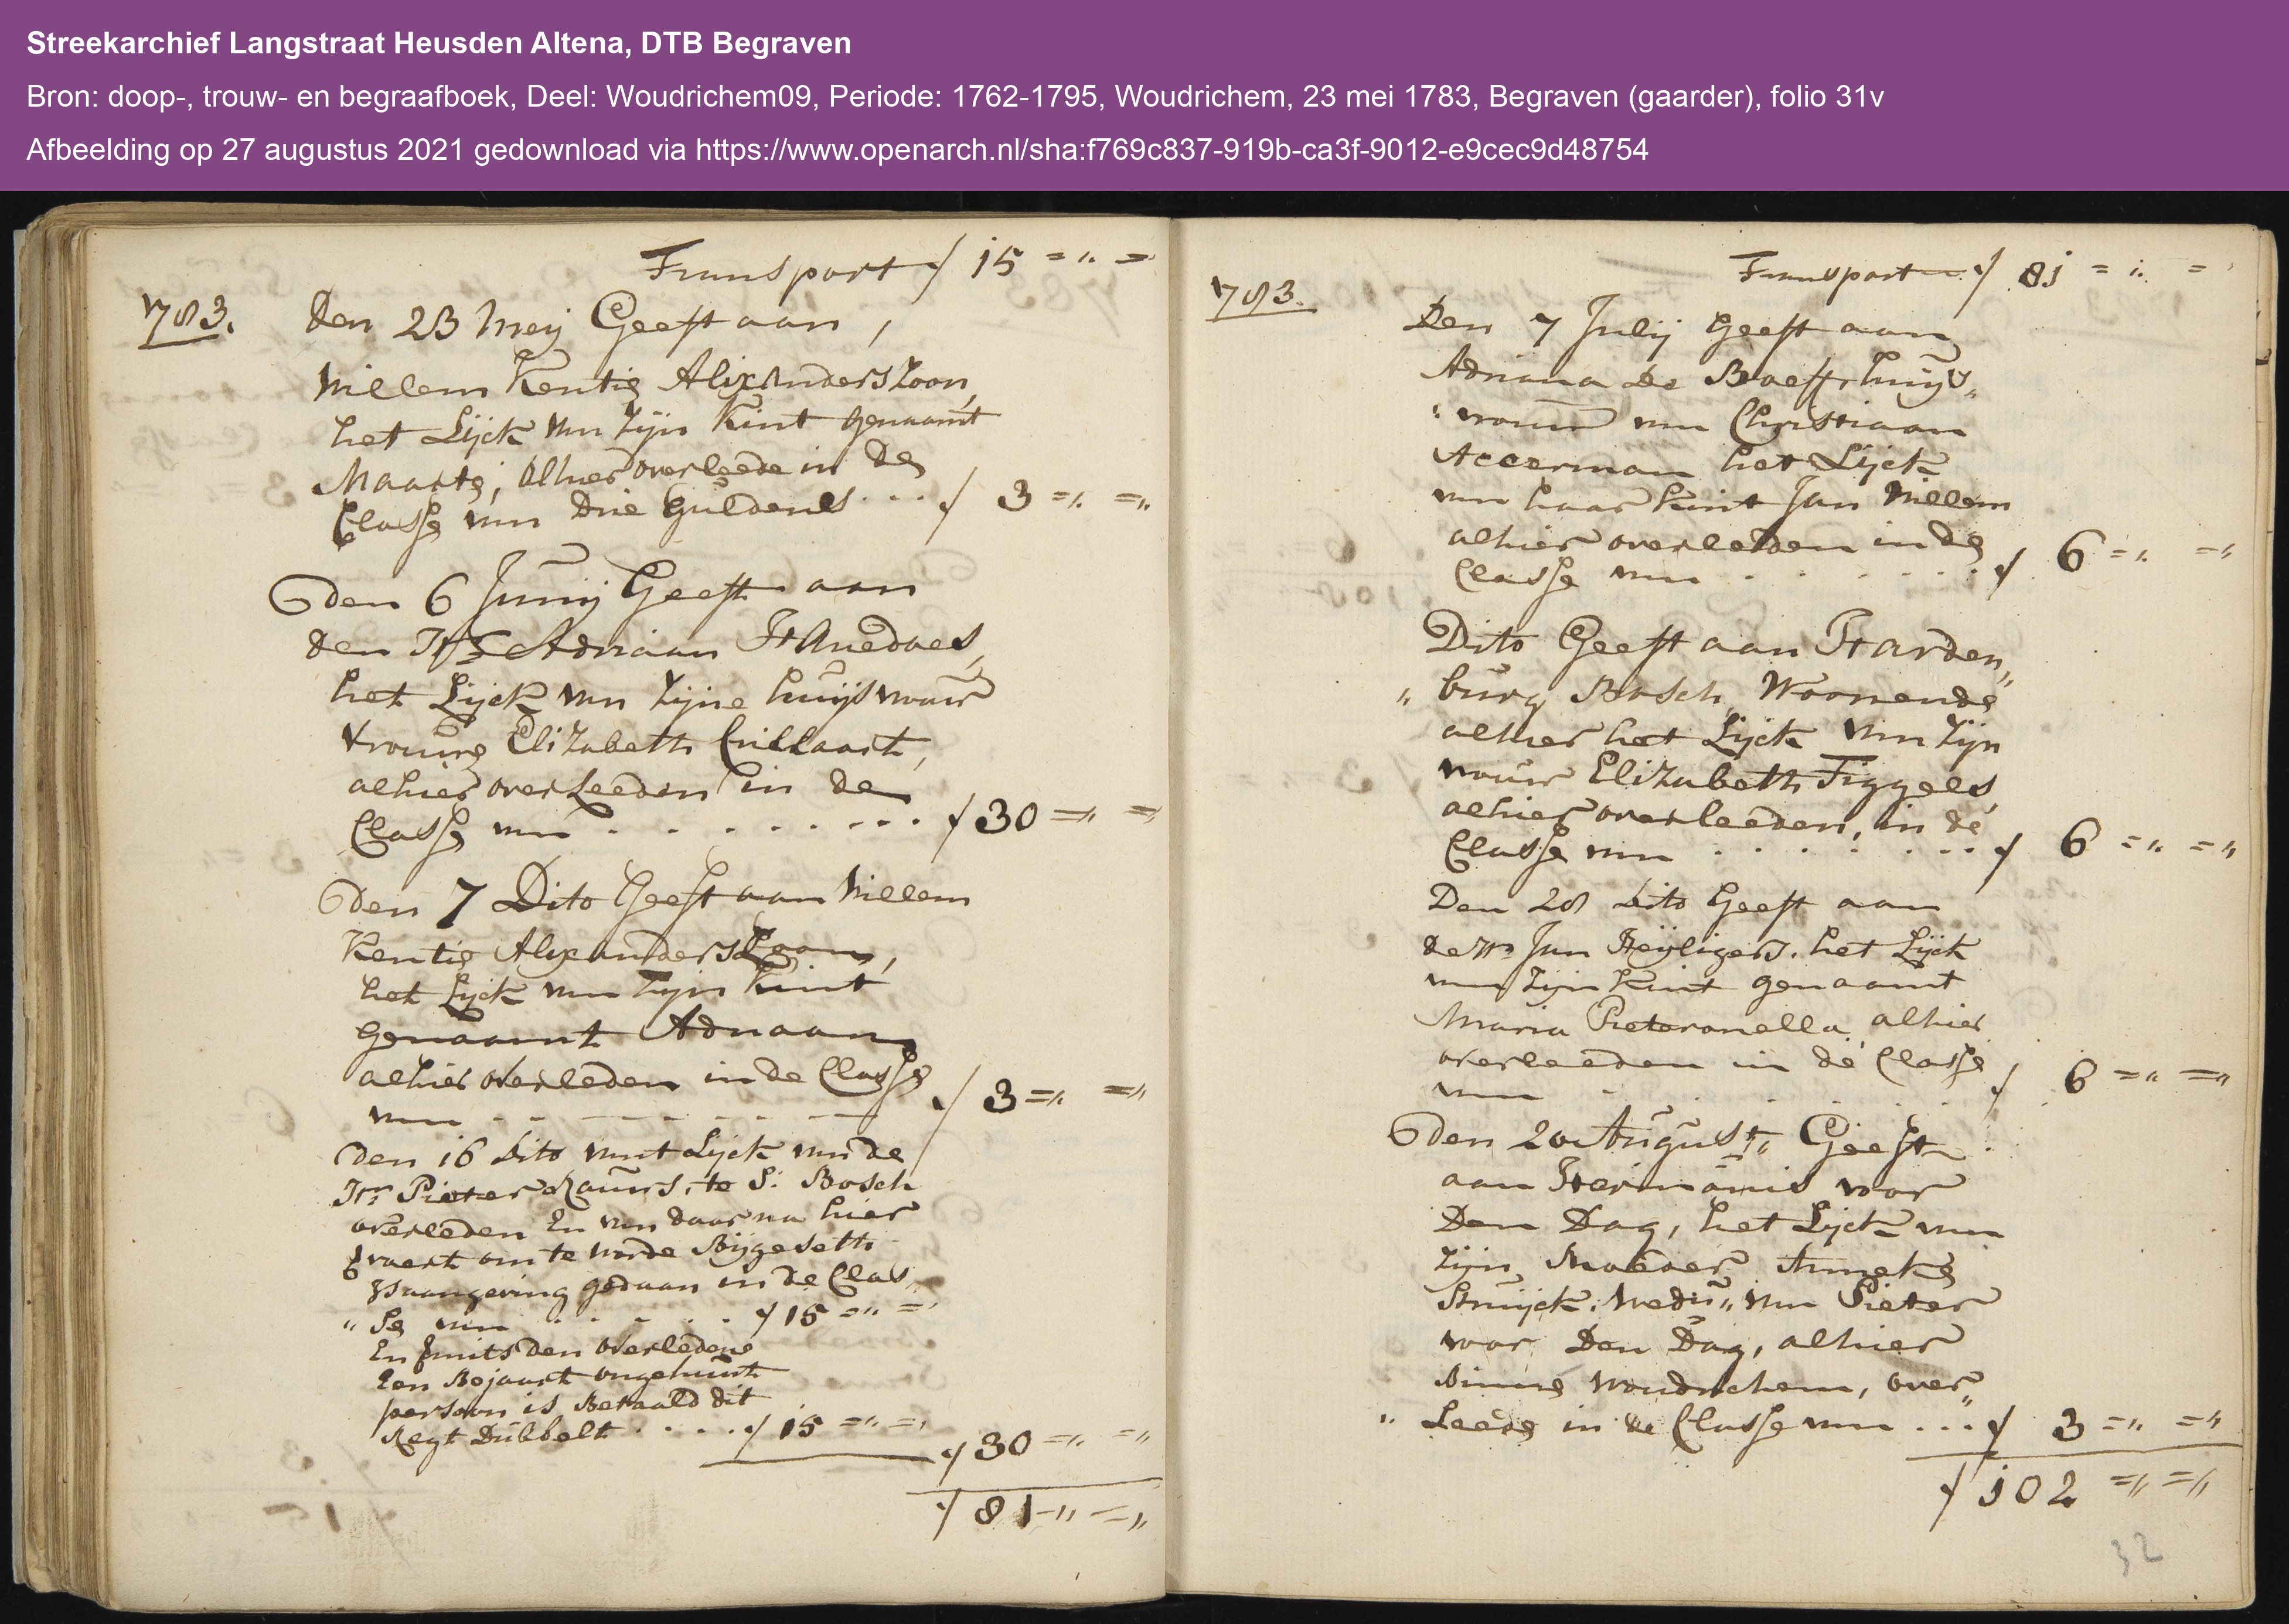 Streekarchief Langstraat Heusden Altena, DTB Begraven
Bron: doop-, trouw- en begraafboek, Deel: Woudrichem09, Periode: 1762-1795, Woudrichem, 23 mei 1783, Begraven (gaarder), folio 31v
Afbeelding op 27 augustus 2021 gedownload via https://www.openarch.nl/sha:f769c837-919b-ca3f-9012-e9cec9d48754
Transport ƒ 15 = " =
1783. Den 23 Meij Geeft aan,
Willem Kentie Alixanderszoon,
het Lijck van zijn Kint genaamt
Maarte, alhier overleede in de
Classe van Drie Guldens . . . ƒ 3 = " = "
den 6 Junij Geeft aan
den Hr Adriaan Hanedoes,
het Lijck van zijne huijsvrouw
vrouwe Elizabeth Crillaart,
alhier overleeden in de
Classe van . . . . . . . . ƒ 30 = " =
den 7 Dito Geeft aan Willem
Kentie Alyxanderszoon,
het Lijck van zijn Kint
genaamt Adriaan
alhier overleden in de Classe
van - - - - - - ƒ 3 = " = "
den 16 dito wert Lijck van de
Hr Pieter te S: Bosch
overleden En van daar na hier
gevoert om te worde Bijgeseth
aangeving gedaan in de Clas
" se van . . . . . ƒ 15 = " =
En mits den overledene
Een Bejaart ongehuwt
persoon is Betaald dit
Regt Dubbelt . . . . ƒ 15 = " =
ƒ 30 = " = "
ƒ 81 - " = "
Transport ƒ 81 = " =
1783.
Den 7 Julij Geeft aan
Adriana de Braeff huijs "
" vrouw van Christiaan
Accerman het Lijck
van haar kint Jan Willem
alhier overleden in de
Classe van . . . . . . ƒ 6 = " = "
Dito Geeft aan Harden "
" burg Bosch, Woonende
alhier het Lijck van zijn
vrouw Elizabeth Tiggels,
alhier overleeden, in de
Classe van . . . . . . . ƒ 6 = " = "
Den 28 dito Geeft aan
de Hr Jan Heijligers. het Lijck
van zijn kint genaamt
Maria Pieteronella, alhier
overleeden in de Classe
van . . . . . ƒ 6 = " = "
den 20 August, Geeft
aan Hermanis voor
Den Dag, het Lijck van
zijn Moeder Anneke
Struijck. Wedu " van Pieter
voor Den Dag, alhier
Binne Woudrichem, over "
" Leede in de Classe van . . . ƒ 3 = " = "
ƒ 102 = " = "
32